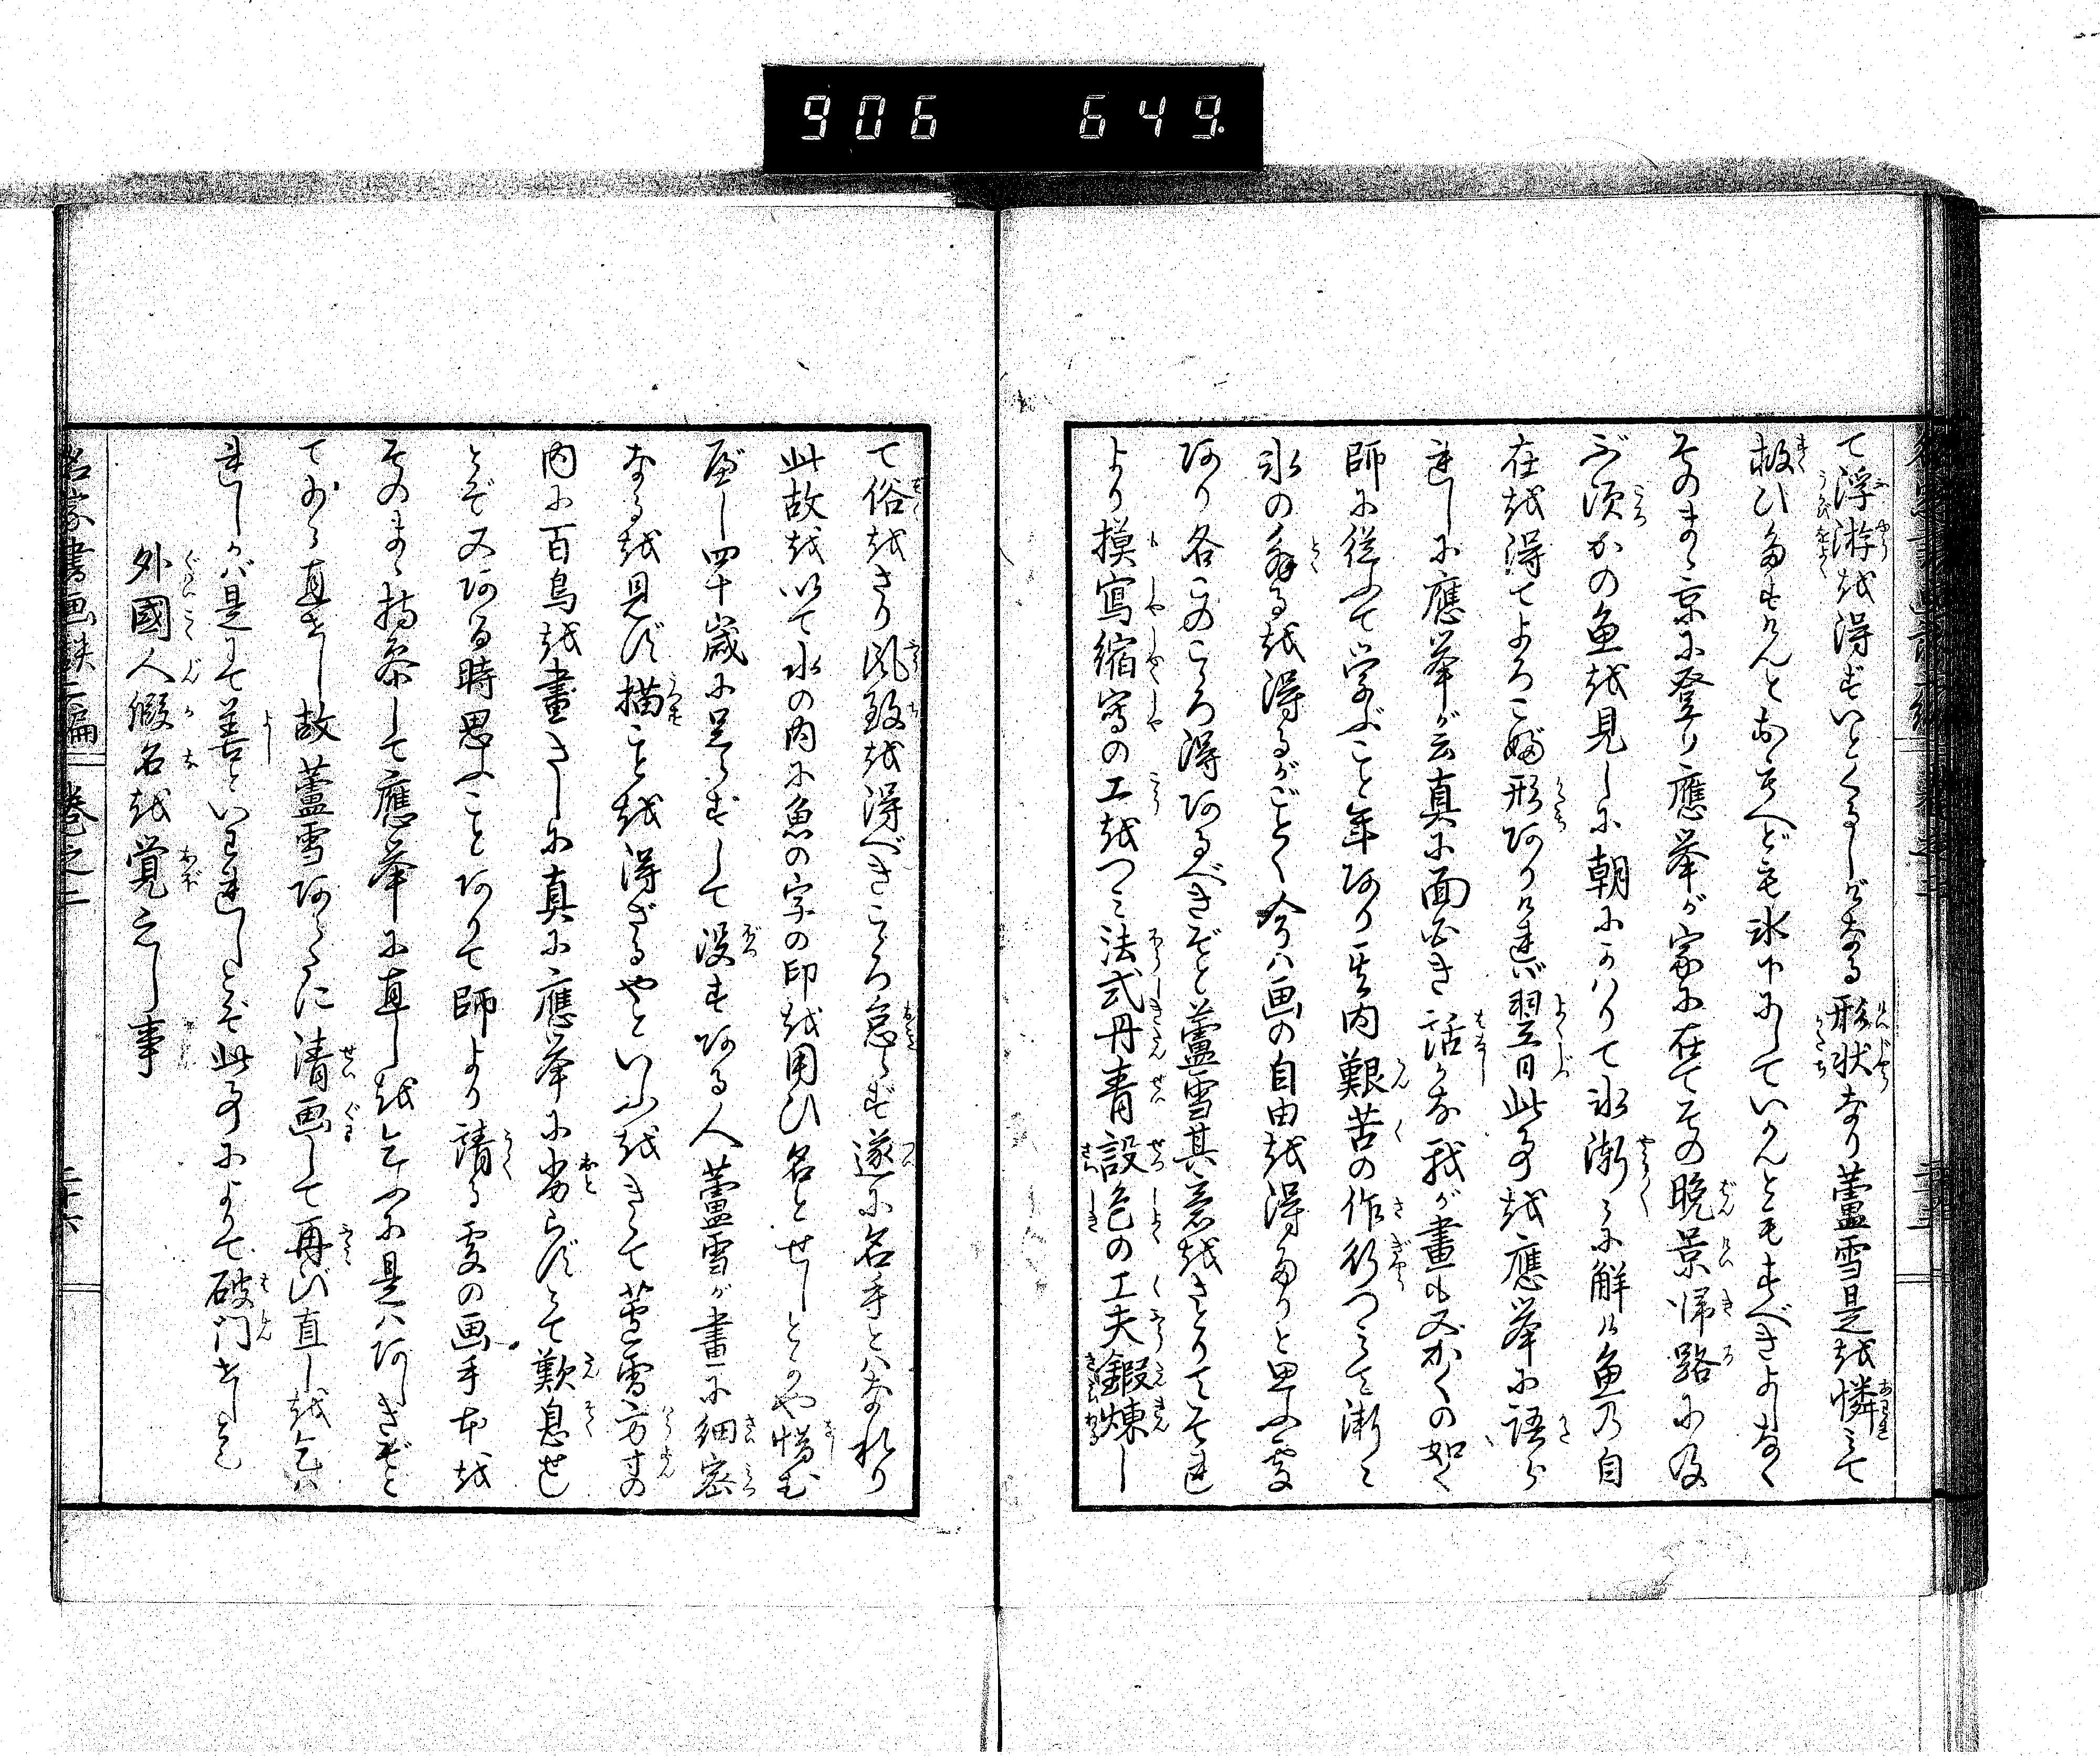 906 649
て浮游を得ずいとくるしげなる形状なり蘆雪是を憐みて
救ひ得させんとおもへども氷中にしていかんともすべきよしなく
そのまゝ京に登り應挙が家に在てその晩景帰路に及
ぶ頃かの魚を見しに朝にかはりて氷漸々に解け魚乃自
在を得てよろこぶ形ありければ翌日此事を應挙に語ら
れしに應挙が云真に面白き話かな我が畫も又かくの如く
師に従ふて学ぶこと年あり其内艱苦の作行つみて漸々
氷の解るを得るがごとく今は画の自由を得たりと思ふ處
あり各このこゝろ得あるべきぞと蘆雪其意をさとりてそれ
より摸寫縮寫の工をつミ法式丹青設色の工夫鍛煉し
て俗をさり風致を得べきこゝろ怠らず遂に名手とハなれり
此故を以て氷の内に魚の字の印を用ひ名とせしとかや惜む
べし四十歳に足らずして没すある人蘆雪が畫に細密
なるを見ず描ことを得ざるやといふをきゝて蘆雪方寸の
内に百鳥を畫きしに真に應挙に劣らずとて歎息せし
とぞ又ある時思ふことありて師より請る處の画手本を
そのまゝ持参して應挙に直しを乞ふに是ハあしきぞと
てあらゝ直せし故蘆雪あらたに清画して再び直しを乞ハ
れしかバ是にて善といはれしとぞ此事によりて破門せしとも
外國人假名を覚えし事
名家書画談二編 巻之二 二十六